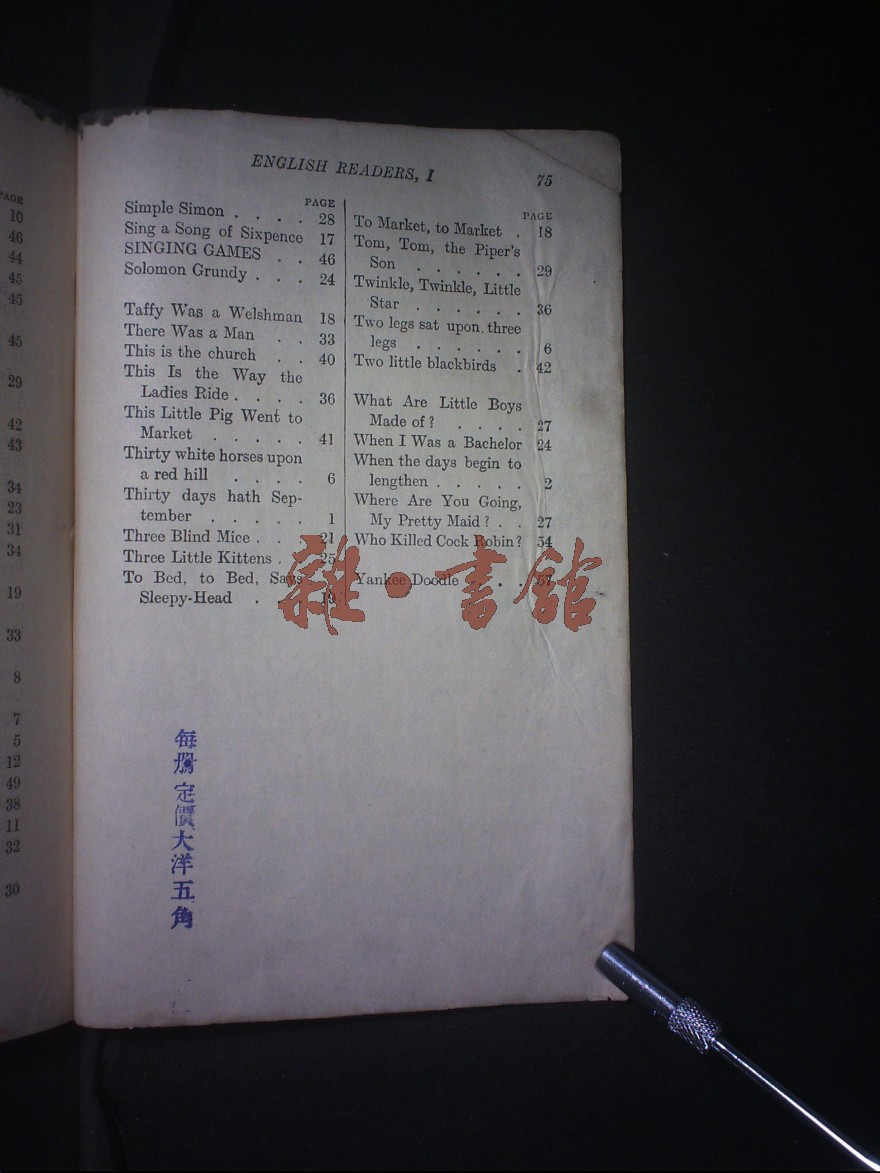 PAGE
10
46
44
45
45
45
29
42
43
34
23
31
34
19
33
8
7
5
12
49
38
11
32
30
ENGLISH READERS, I 75
PAGE
Simple Simon . . . . 28
Sing a Song of Sixpence 17
SINGING GAMES . . 46
Solomon Grundy . . . 24
Taffy Was a Welshman 18
There Was a Man . . 33
This is the church . . 40
This Is the Way the
Ladies Ride . . . . 36
This Little Pig Went to
Market . . . . . 41
Thirty white horses upon
a red hill . . . . 6
Thirty days hath Sep-
tember . . . . . 1
Three Blind Mice . . . 21
Three Little Kittens . . 25
To Bed, to Bed, Says
Sleepy-Head . . . 19
PAGE
To Market, to Market . 18
Tom, Tom, the Piper's
Son . . . . . . 29
Twinkle, Twinkle, Little
Star . . . . . . 36
Two legs sat upon three
legs . . . . . . 6
Two little blackbirds . 42
What Are Little Boys
Made of ? . . . . 27
When I Was a Bachelor 24
When the days begin to
lengthen . . . . . 2
Where Are You Going,
My Pretty Maid ? . . 27
Who Killed Cock Robin ? 54
Yankee Doodle . . . . 57
雜·書館
每册定價大洋五角